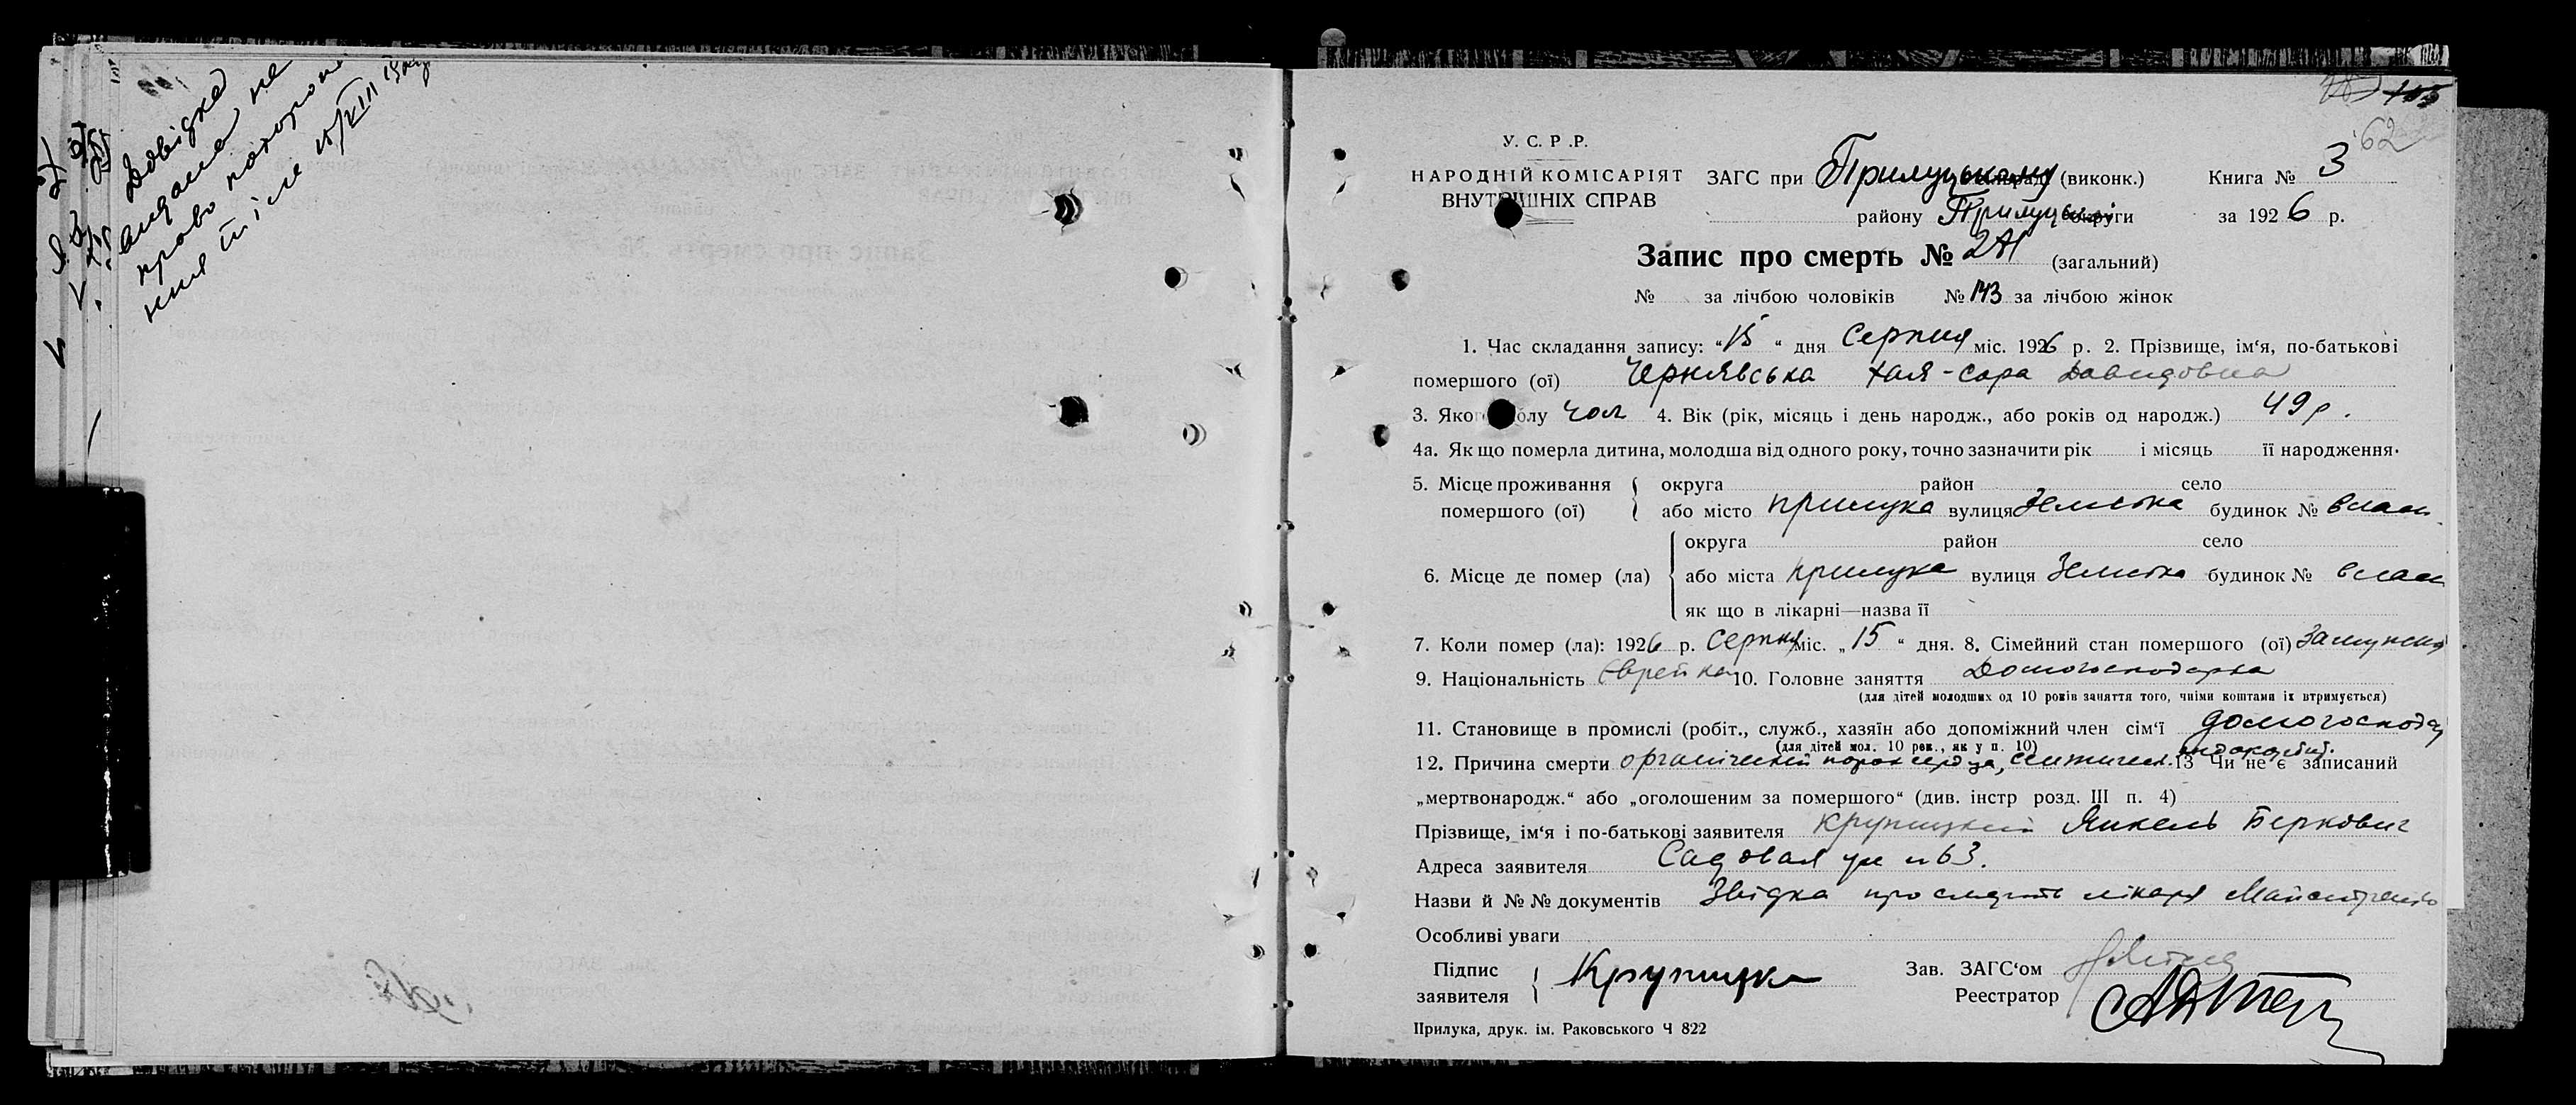 Довідка
видана на
право похорони
ния тіла 15/VIII
105
62
У. С. Р. Р.
НАРОДНІЙ КОМІСАРІЯТ ЗАГС при Прилуцькому (виконк.) Книга № 3
ВНУТРІШНІХ СПРАВ району Прилуцької округи за 1926 р.
Запис про смерть № 271 (загальний)
№ за лічбою чоловіків № 143 за лічбою жінок
1. Час складання запису: „15“ дня Серпня міс. 1926 р. 2. Прізвище, ім‘я, по-батькові
померлого (ої) Чернявська Хая-Сора Давидовна
3. Якого полу чол 4. Вік (рік, місяць і день народж., або років од народж.) 49 р.
4а. Як що померла дитина, молодша від одного року, точно зазначити рік і місяць її народження.
5. Місце проживання округа район село
помершого (ої) або місто Прилука вулиця Земська будинок № власн
округа район село
6. Місце де помер (ла) або міста Прилука вулиця Земська будинок № власн
як що в лікарні—назва її
7. Коли помер (ла): 1926 р. Серпня міс. „15“ дня. 8. Сімейний стан помершого (ої) Замужня
9. Національність Єврейка 10. Головне заняття Домогосподарка
(для дітей молодших од 10 років заняття того, чиїми коштами їх втримується)
11. Становище в промислі (робіт., служб., хазяїн або допоміжний член сім‘ї домогоспода
(для дітей мол. 10 рок., як у п. 10)
12. Причина смерти органічний порок сердца, септичн. ендокардит. 13 Чи не є записаний
„мертвонародж.“ або „оголошеним за помершого“ (див. інстр розд. III п. 4)
Прізвище, ім‘я і по-батькові заявителя Крупицкий Янкель Беркович
Адреса заявителя Садовая ул n 63.
Назви й №№ документів Звідка про смерть лікаря Майстренко
Особливі уваги
Підпис Зав. ЗАГС‘ом
заявителя Крупицки Реєстратор
Прилука, друк. ім. Раковського Ч 822